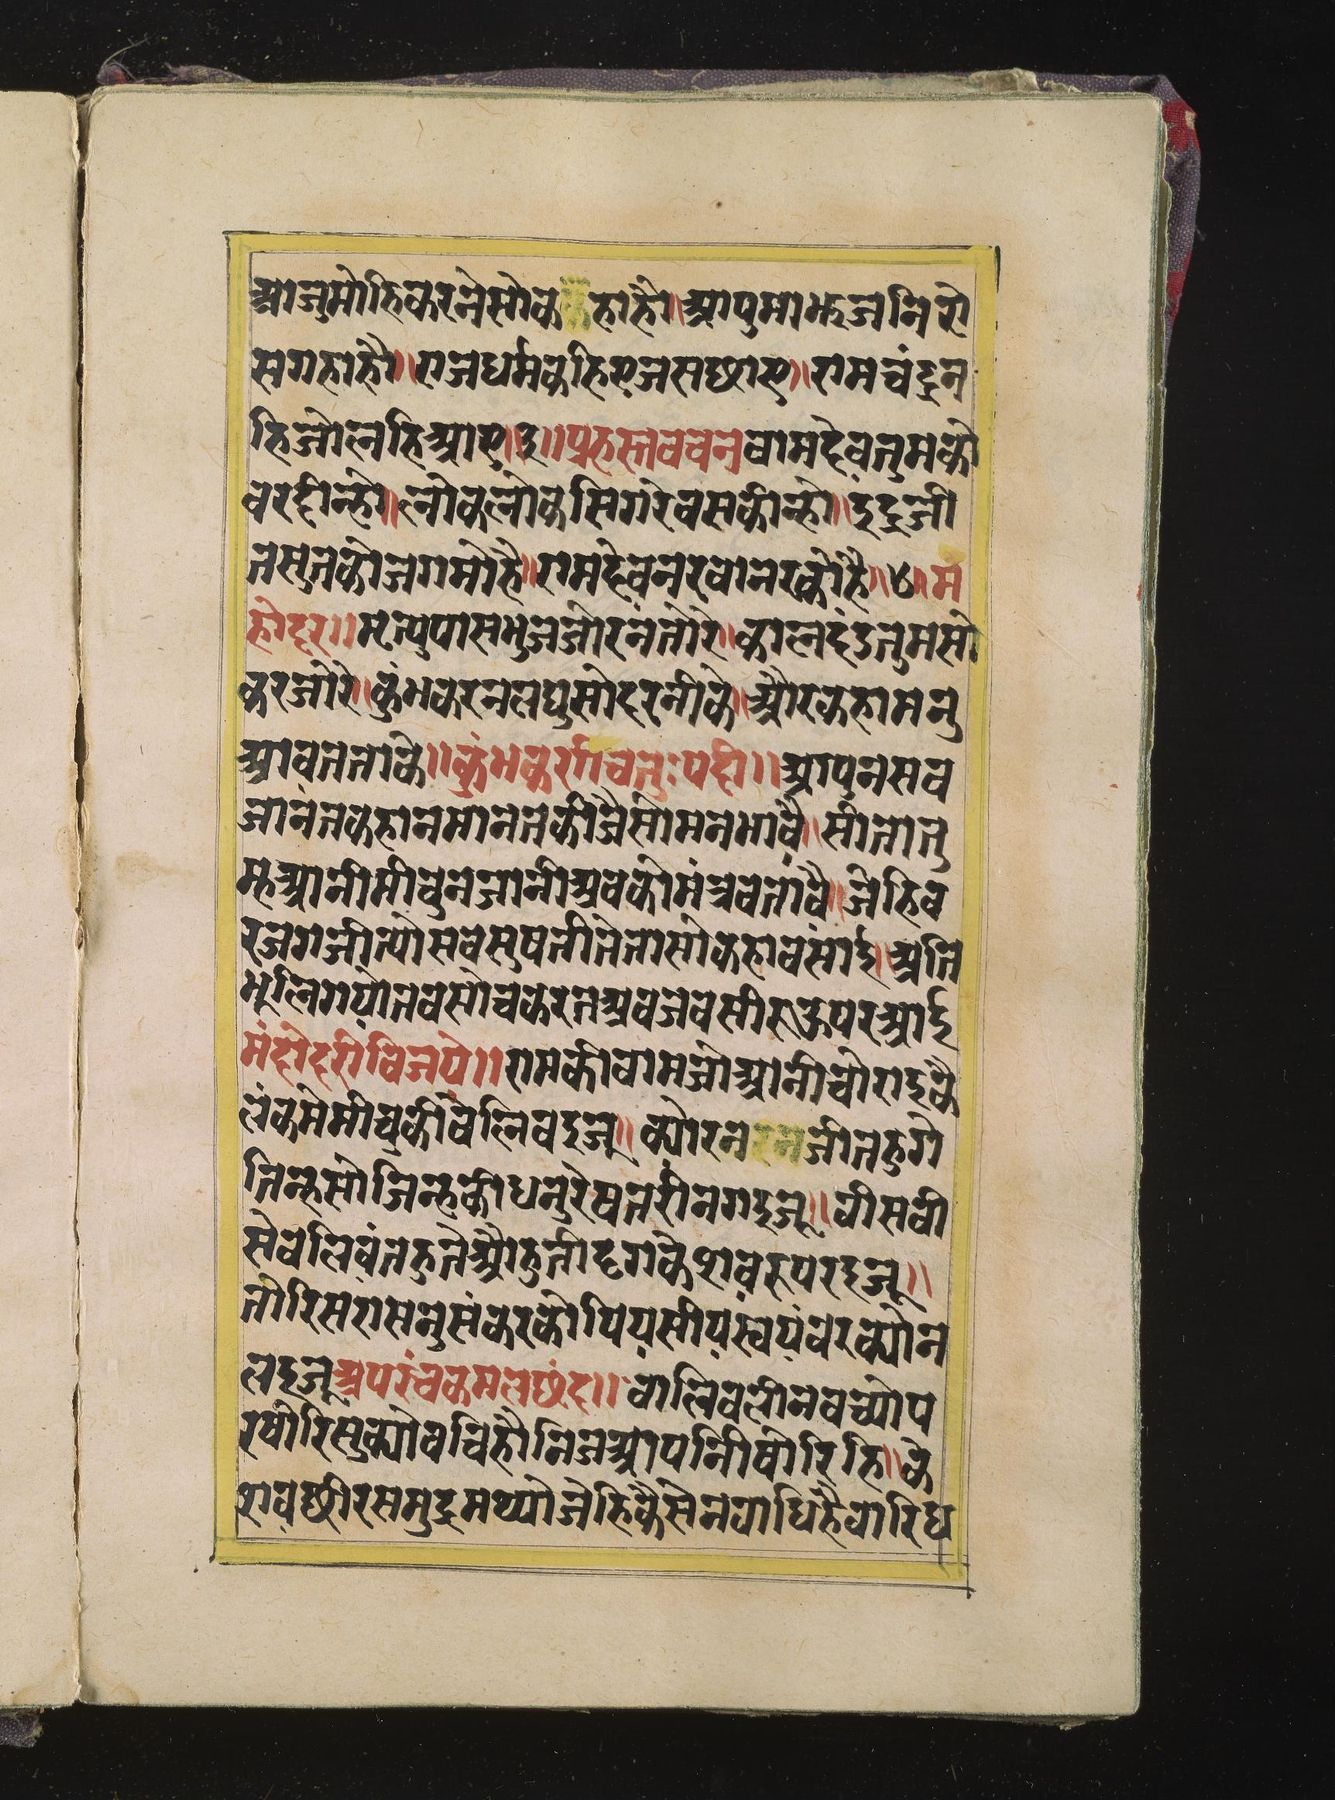 आजुमोहिकरनेसोक कहाहौ॥आपुमाझजनिरो
सगहाहौ॥राजधर्मकहिएजसछाए॥रामचंद्रन
हिजोलहिआए॥३॥प्रहस्तवचन वामदेवतुमको
वरदीन्हो॥लोकलोकसिगरेवसकीन्हो॥इंद्रजी
तसुतकोजगमोहै॥रामदेवनरवानरकोहै॥४॥म
होदर॥मृत्युपासभुजजोरनतोरे॥कालदंडतुमसो
करजोरे॥कुंभकरनलघुसोदरनीके॥औरकहामनु
आवतताके॥कुंभकर्नवचनुःपद्दी॥आपुनसव
जानतकहानमानतकीजैसोमनभावै॥सीतातु
म्हआनीमीचुनजानीअवकोमंत्रवतावै॥जेहिव
रजगजीत्योसवसुषतीतेतासोकहावंसाई॥अति
भूलिगयोतवसोचकरतअवजवसीरऊपरआई
मंदोदरीविजये॥रामकीवामजोआनीचोराइकै
लंकमेमीचुकीवेलिवइजू॥क्योरन रन जीतहुगे
तिन्हसोजिन्हकीधनुरेषतरीनगइजू॥वीसवी
सेवलिवंतहुतेऔहुतीदृगकेशवरूपरइजू॥
तोरिसरासनुसंकरकोपियसीयस्वयंवरक्योन
लइजू अपरंचकमलछंद॥वालिवलीनवच्योप
रषोरिसुक्योवचिहौनिजआपनिषोरिहि॥के
शवछीरसमुद्रमथ्योजेहिकैसेनवाधिहैवारिध